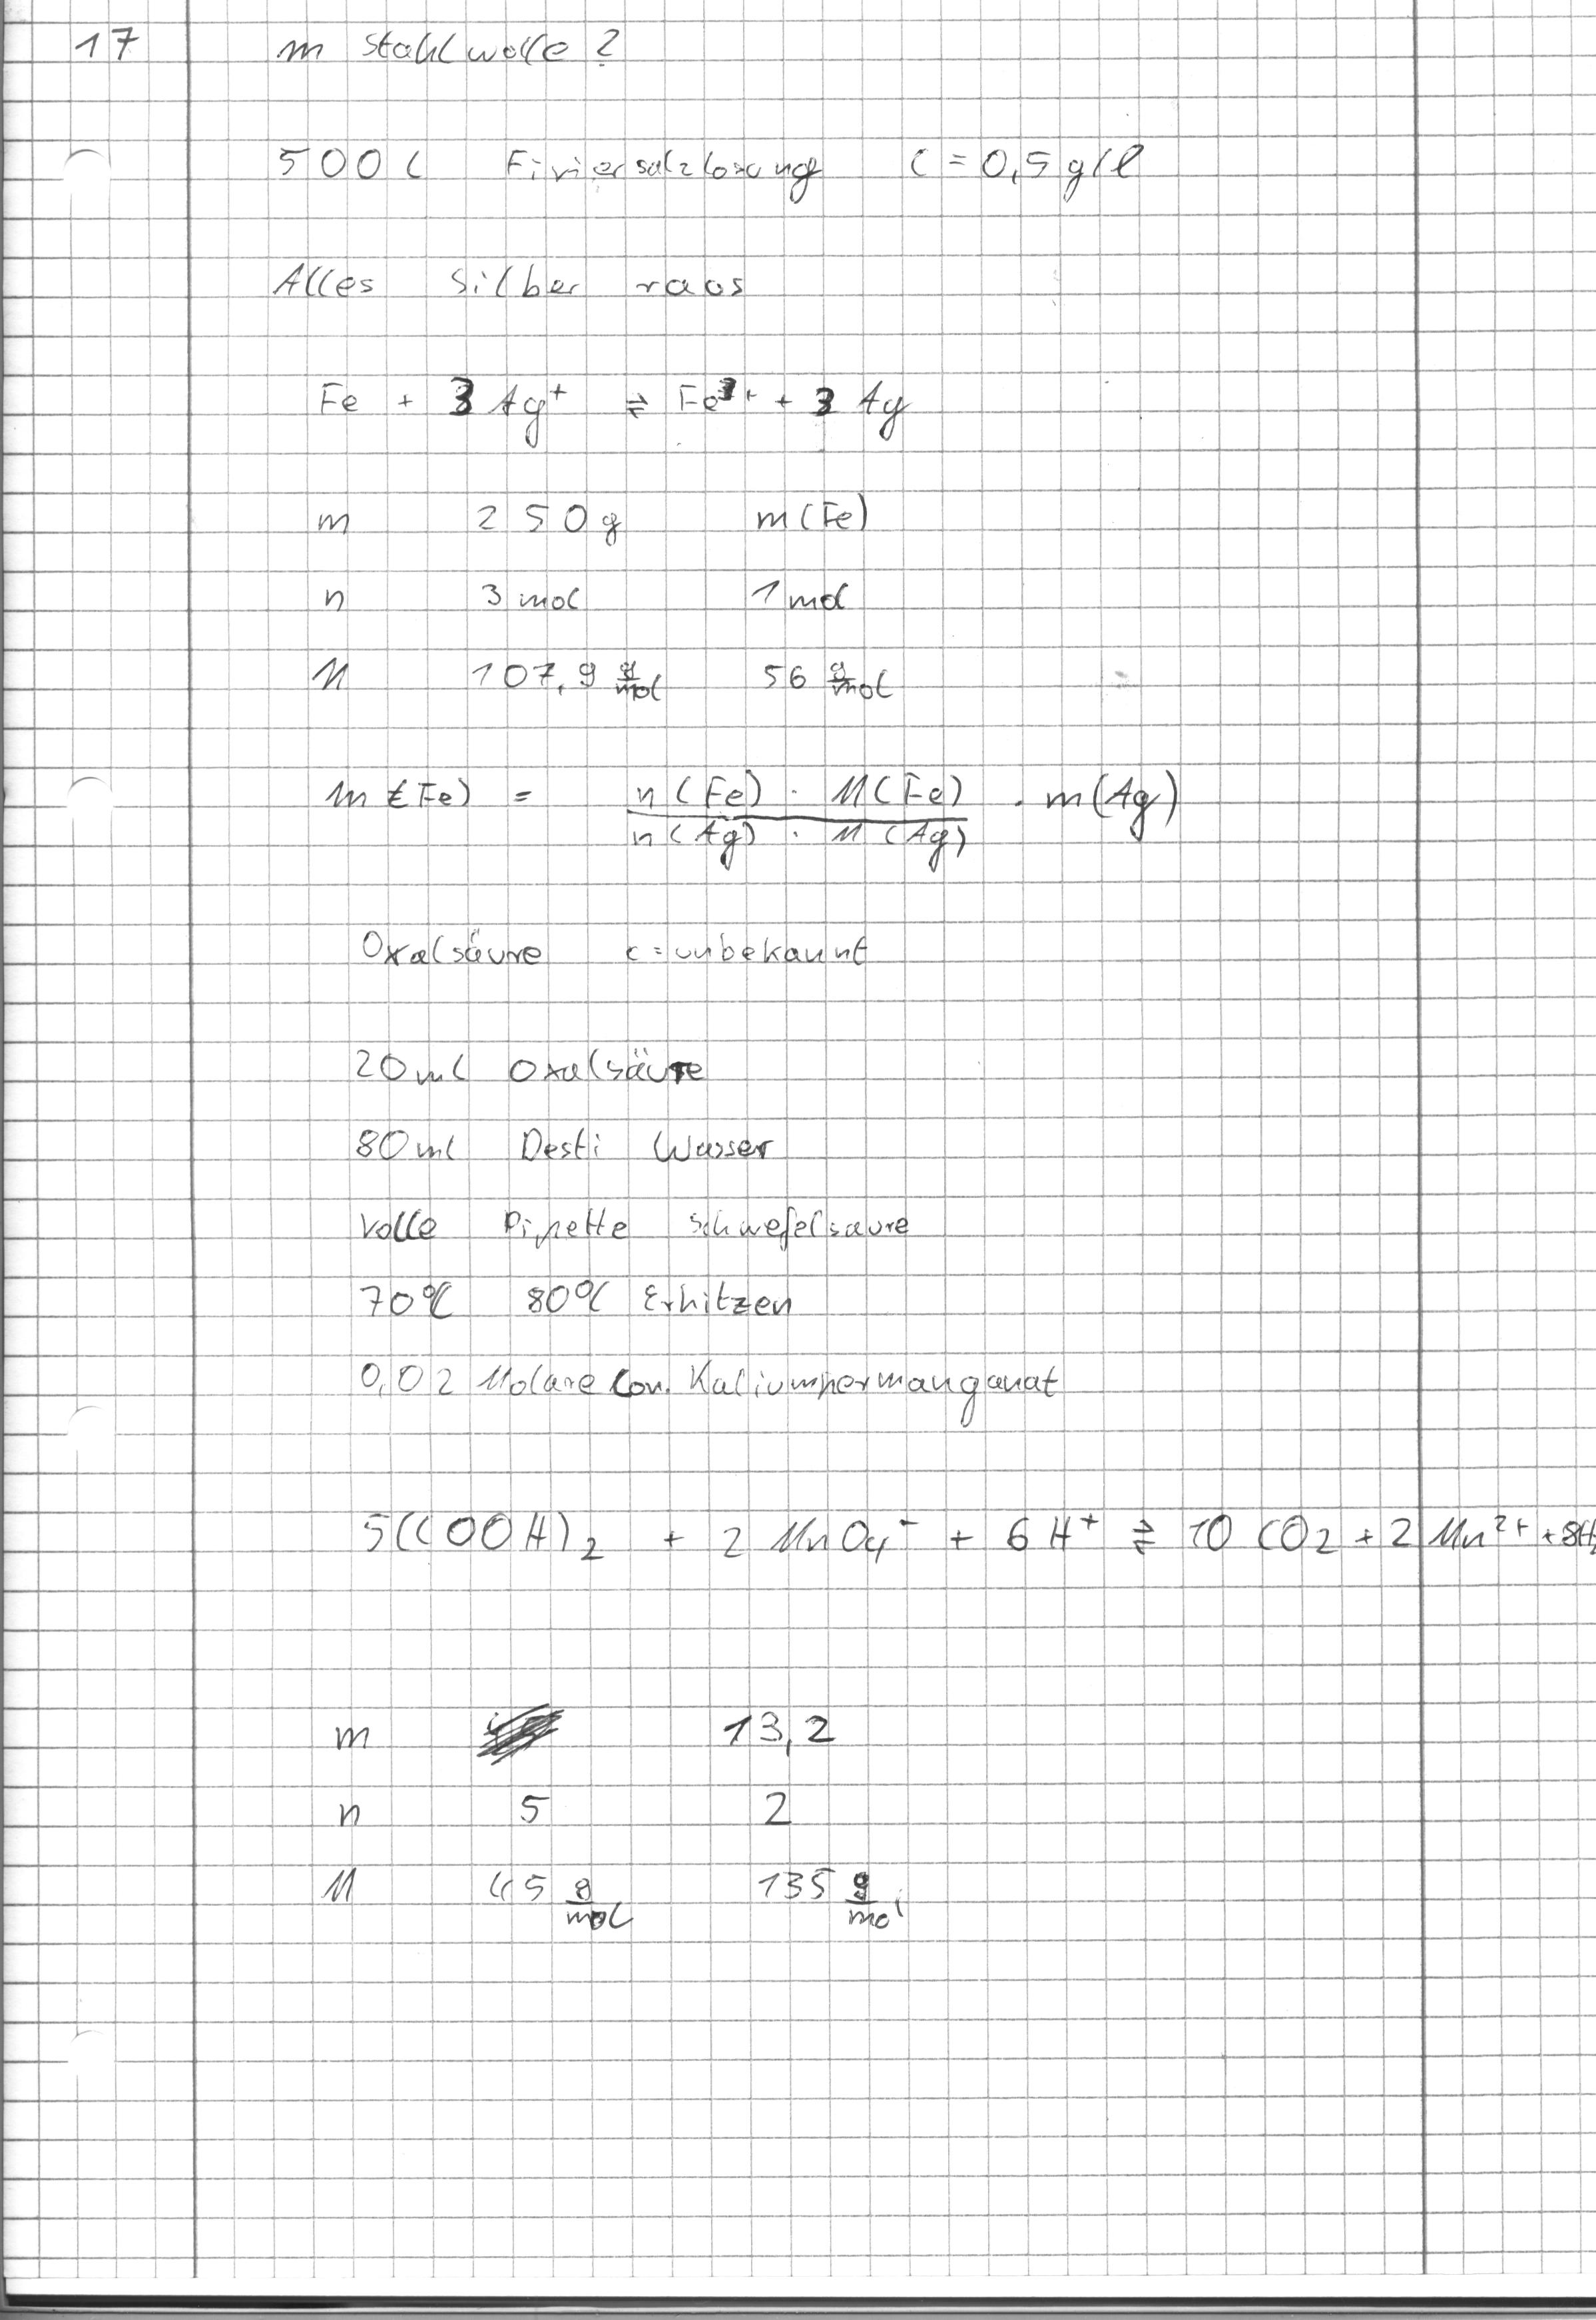 17 m Stahlwolle?
500 l Fixiersalzlosung C = 0,5 g/l
Alles Silber raos
Fe + 3 Ag⁺ ⇌ Fe³⁺ + 3 Ag
m 250 g m(Fe)
n 3 mol 1 mol
M 107,9 g/mol 56 g/mol
m(Fe) = n(Fe) · M(Fe) / n(Ag) · M(Ag) · m(Ag)
Oxalsäure c = unbekannt
20 ml Oxalsäure
80 ml Desti Wasser
volle Pipette Schwefelsaure
70°C 80°C Erhitzen
0,02 Molare Lon. Kaliumpermanganat
5(COOH)₂ + 2 MnO₄⁻ + 6 H⁺ ⇌ 10 CO₂ + 2 Mn²⁺ + 8H₂
m 13,2
n 5 2
M 45 g/mol 135 g/mol